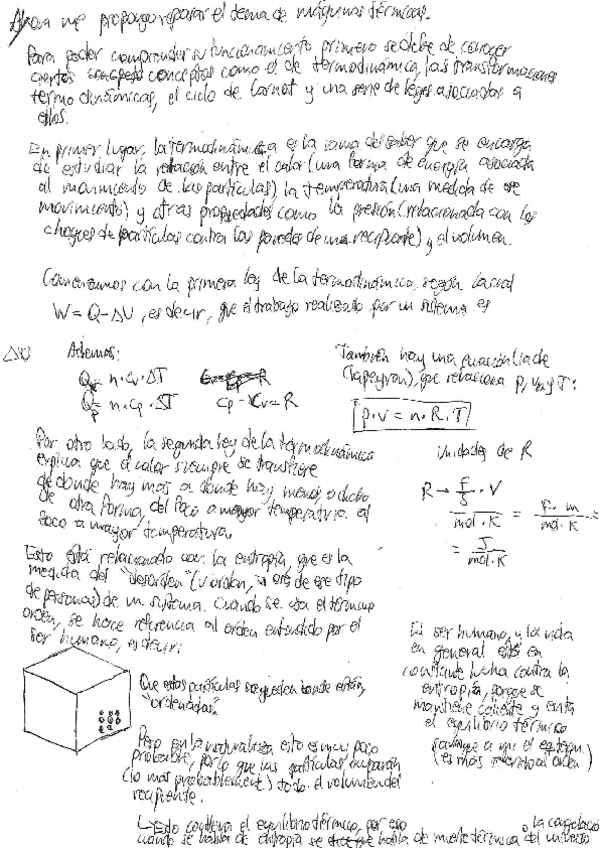 Ahora me propongo repasar el tema de máquinas térmicas.
Para poder comprender su funcionamiento primero se debe de conocer
ciertos conceptos como el de termodinámica, las transformaciones
termodinámicas, el ciclo de Carnot y una serie de leyes asociadas a
ellos.
En primer lugar, la termodinámica es la rama del saber que se encarga
de estudiar la relación entre el calor (una forma de energía asociada
al movimiento de las partículas) la temperatura (una medida de ese
movimiento) y otras propiedades como la presión (relacionada con los
choques de partículas contra las paredes de un recipiente) y el volumen.
Comenzamos con la primera ley de la termodinámica, según la cual
W = Q - ΔU, es decir, que el trabajo realizado por un sistema es
ΔU Además:
Q = n · cv · ΔT
Qp = n · cp · ΔT cp - cv = R
También hay una ecuación (la de
Clapeyron), que relaciona p, V y T:
p · v = n · R · T
Por otro lado, la segunda ley de la termodinámica
explica que el calor siempre se transfiere
de donde hay más a donde hay menos, o dicho
de otra forma, del foco a mayor temperatura al
foco a mayor temperatura.
Unidades de R
R → F/S · V
mol · K = F · m
mol · K
= J
mol · K
Esto está relacionado con la entropía, que es la
medida del "desorden" (u orden, si eres de ese tipo
de personas) de un sistema. Cuando se usa el término
orden, se hace referencia al orden entendido por el
ser humano, es decir:
Que estas partículas se queden donde están,
"ordenadas".
Pero en la naturaleza esto es muy poco
probable, por lo que las partículas ocuparán
(lo más probablemente) todo el volumen del
recipiente.
El ser humano, y la vida
en general está en
constante lucha contra la
entropía, porque se
mantiene caliente y evita
el equilibrio térmico
(aunque a un el
(es más al orden)
↳ Esto conlleva el equilibrio térmico, por eso
cuando se habla de entropía se habla de muerte térmica del universo
o la congelación